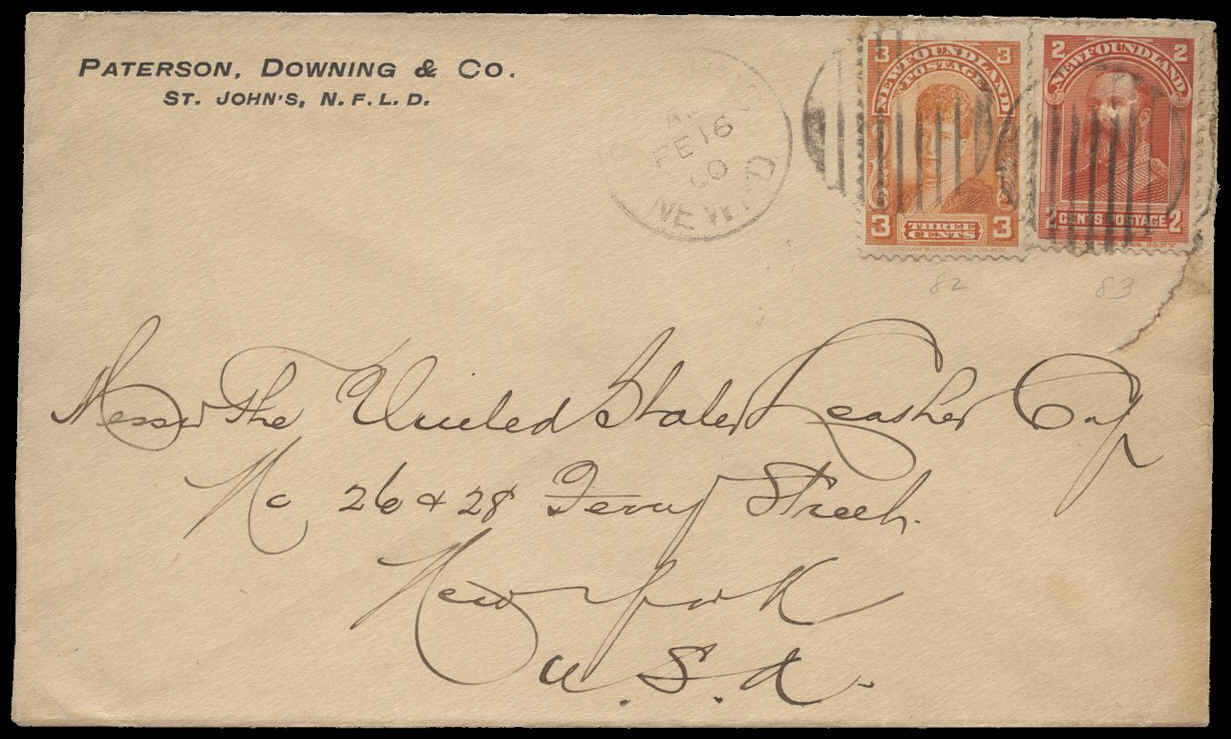 PATERSON, DOWNING & CO.
ST. JOHN'S, N.F.L.D.
FE 16
00
NEWF'D
3 3
NEWFOUNDLAND
POSTAGE
3 THREE CENTS 3
2 2
NEWFOUNDLAND
2 CENTS POSTAGE 2
82 83
Messrs The United States Leather Coy
No 26 & 28 Ferry Street.
New York
U.S.A.